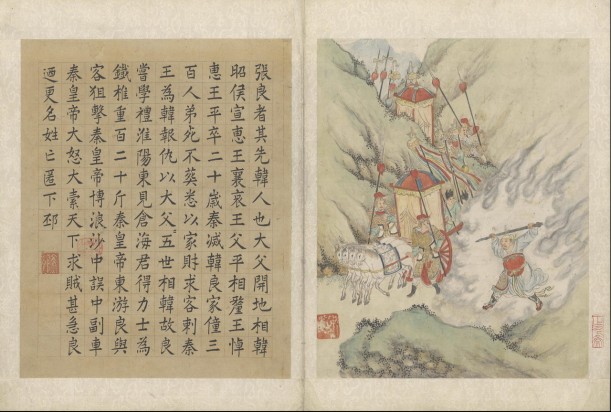 張良者其先韓人也大父開地相韓
昭侯宣惠王襄哀王父平相釐王悼
惠王平卒二十歲秦滅韓良家僮三
百人弟死不葬悉以家財求客刺秦
王為韓報仇以大父五世相韓故良
嘗學禮淮陽東見倉海君得力士為
鐵椎重百二十斤秦皇帝東游良與
客狙擊秦皇帝博浪沙中誤中副車
秦皇帝大怒大索天下求賊甚急良
迺更名姓亡匿下邳